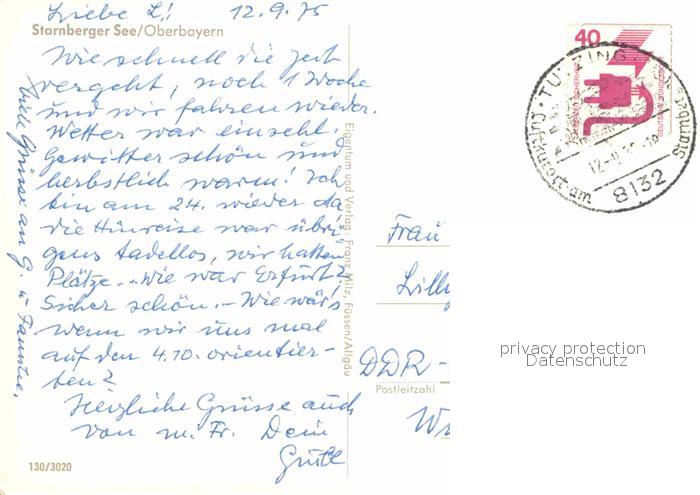 Liebe L.! 12.9.75
Starnberger See/Oberbayern
Wie schnell die Zeit
vergeht, noch 1 Woche
und wir fahren wieder.
Wetter war einschl.
Gewitter schön und
herbstlich warm! Ich
bin am 24. wieder da,
die Hinreise war übri-
gens tadellos, wir hatten
Plätze. - Wie war Erfurt?
Sicher schön. - Wie wär's
wenn wir uns mal
auf den 4.10. orientier-
ten?
Herzliche Grüsse auch
von m. Fr. Dein
viele Grüsse an G. u.
130/3020
Eigentum und Verlag: Franz Milz, Füssen/Allgäu
40
DEUTSCHE BUNDESPOST
TUTZING
Luftkurort am Starnberger
12.-9.75.-18
8132
Frau
Lilly
DDR-
Postleitzahl
privacy protection
Datenschutz